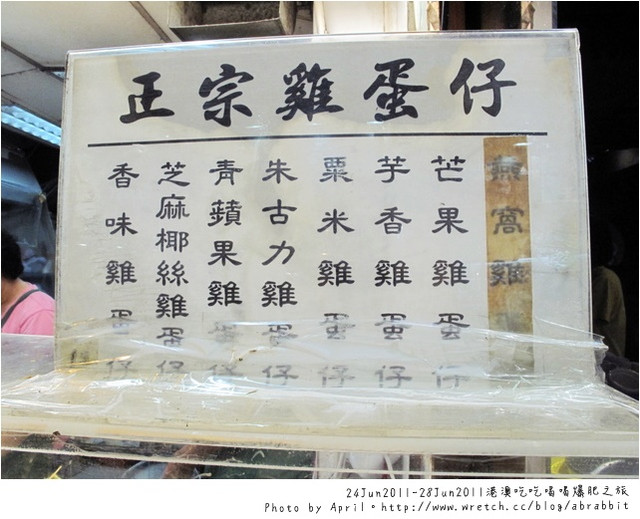 正宗雞蛋仔
燕窩雞
芒果雞蛋仔
芋香雞蛋仔
粟米雞蛋仔
朱古力雞蛋仔
青蘋果雞蛋仔
芝麻椰絲雞蛋仔
香味雞蛋仔
24Jun2011-28Jun2011港澳吃吃喝喝爆肥之旅
Photo by April。http://www.wretch.cc/blog/abrabbit